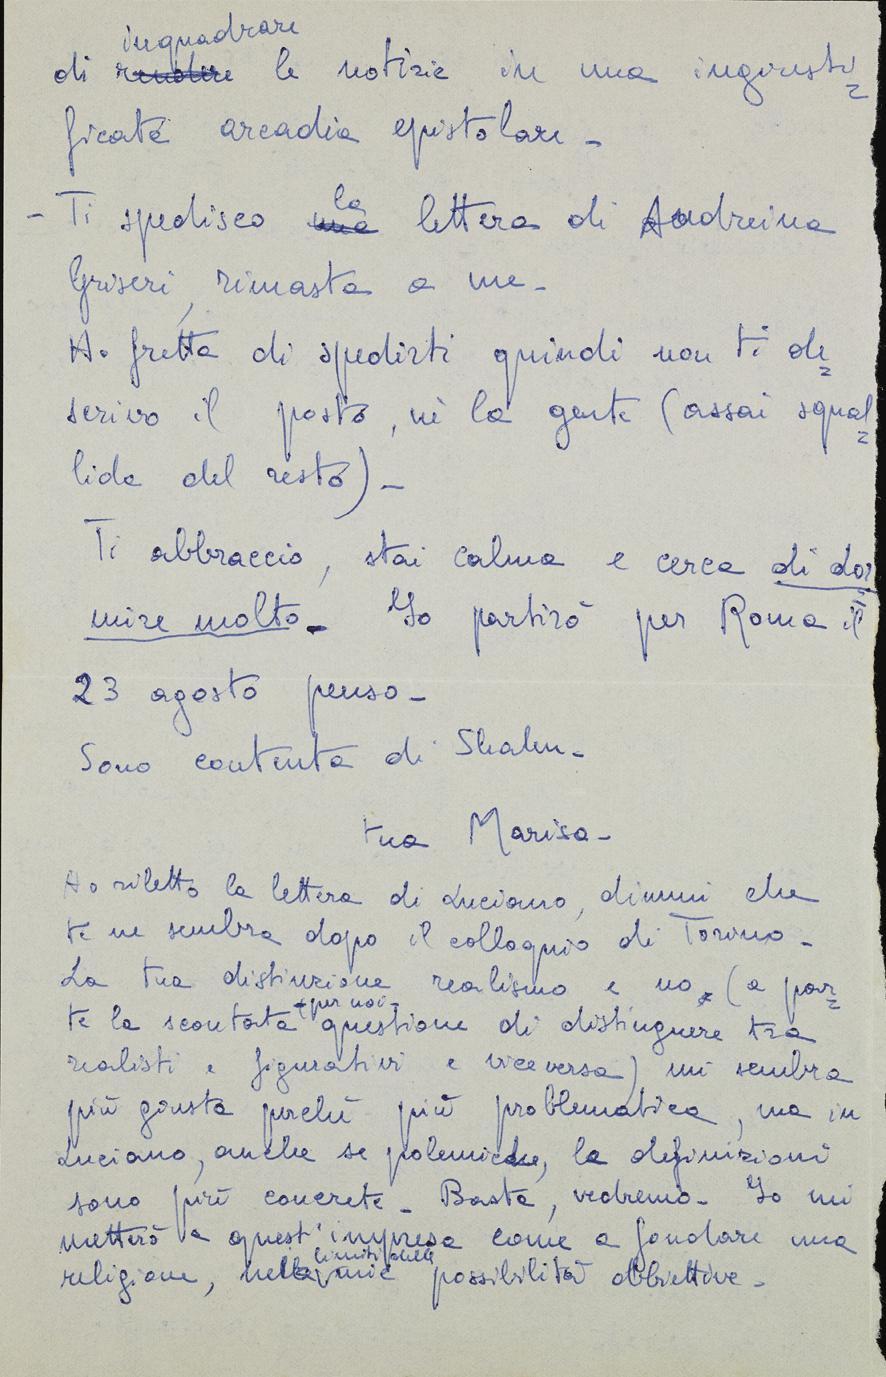 inquadrare
di rendere le notizie in una ingiusti=
ficata arcadia epistolare -
- Ti spedisco la una lettera di Andreina
Griseri, rimasta a me -
Ho fretta di spedirti quindi non ti de=
scrivo il posto, nè la gente (assai squal=
lida del resto) -
Ti abbraccio, stai calma e cerca di dor=
mire molto - Io partirò per Roma il
23 agosto penso -
Sono contenta di Shahn -
tua Marisa -
Ho riletto la lettera di Luciano, dimmi che
te ne sembra dopo il colloquio di Torino -
La tua distinzione realismo e no, (a par=
te la scontata - per noi - questione di distinguere tra
realisti e figurativi e viceversa) mi sembra
più giusta perchè più problematica, ma in
Luciano, anche se polemiche, le definizioni
sono più concrete - Basta, vedremo - Io mi
metterò a quest'impresa come a fondare una
religione, nelle limiti delle mie possibilità obbiettive -